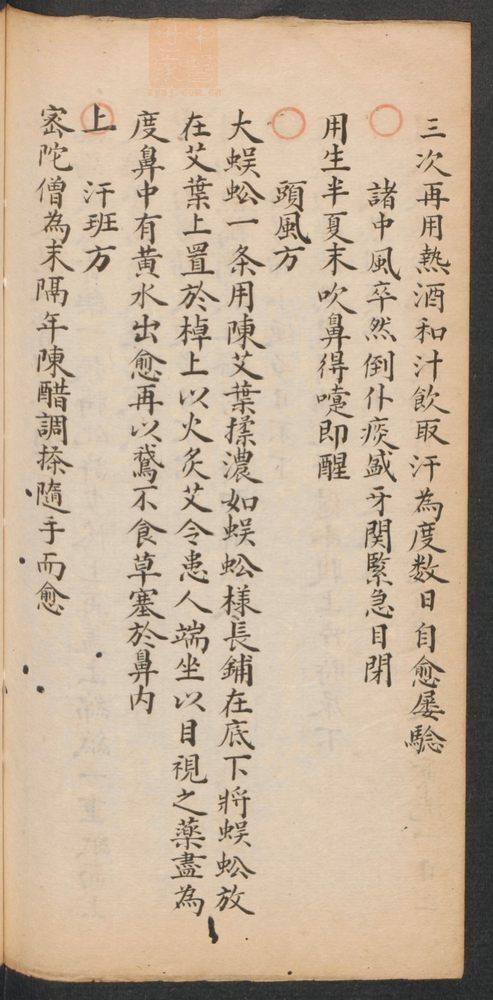 三次再用熱酒和汁飲取汗為度数日自愈屡騐
諸中風卒然倒仆痰盛牙関緊急目閉
用生半夏末吹鼻得嚏即醒
頭風方
大蜈蚣一条用陳艾葉揉濃如蜈蚣様長鋪在底下将蜈蚣放
在艾葉上置於棹上以火炙艾令患人端坐以目視之藥盡為
度鼻中有黄水出愈再以鵞不食草塞於鼻内
上 汗班方
宻陀僧為末隔年陳醋調搽隨手而愈